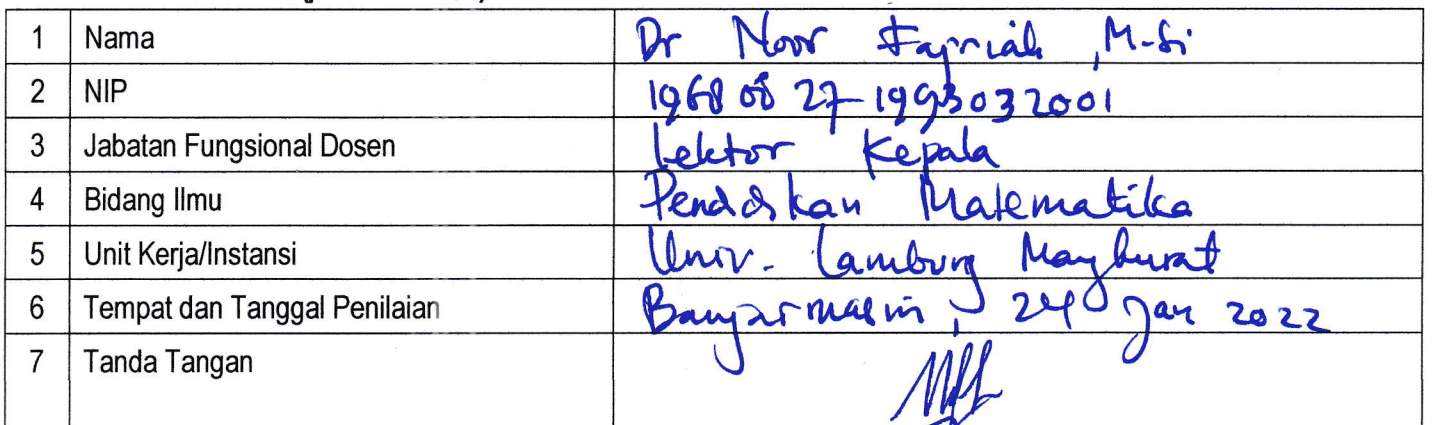 1 Nama Dr Noor Fajriah, M.Si
2 NIP 19680827 1993032001
3 Jabatan Fungsional Dosen Lektor Kepala
4 Bidang Ilmu Pendidikan Matematika
5 Unit Kerja/Instansi Univ. Lambung Mangkurat
6 Tempat dan Tanggal Penilaian Banjarmasin, 24 Jan 2022
7 Tanda Tangan